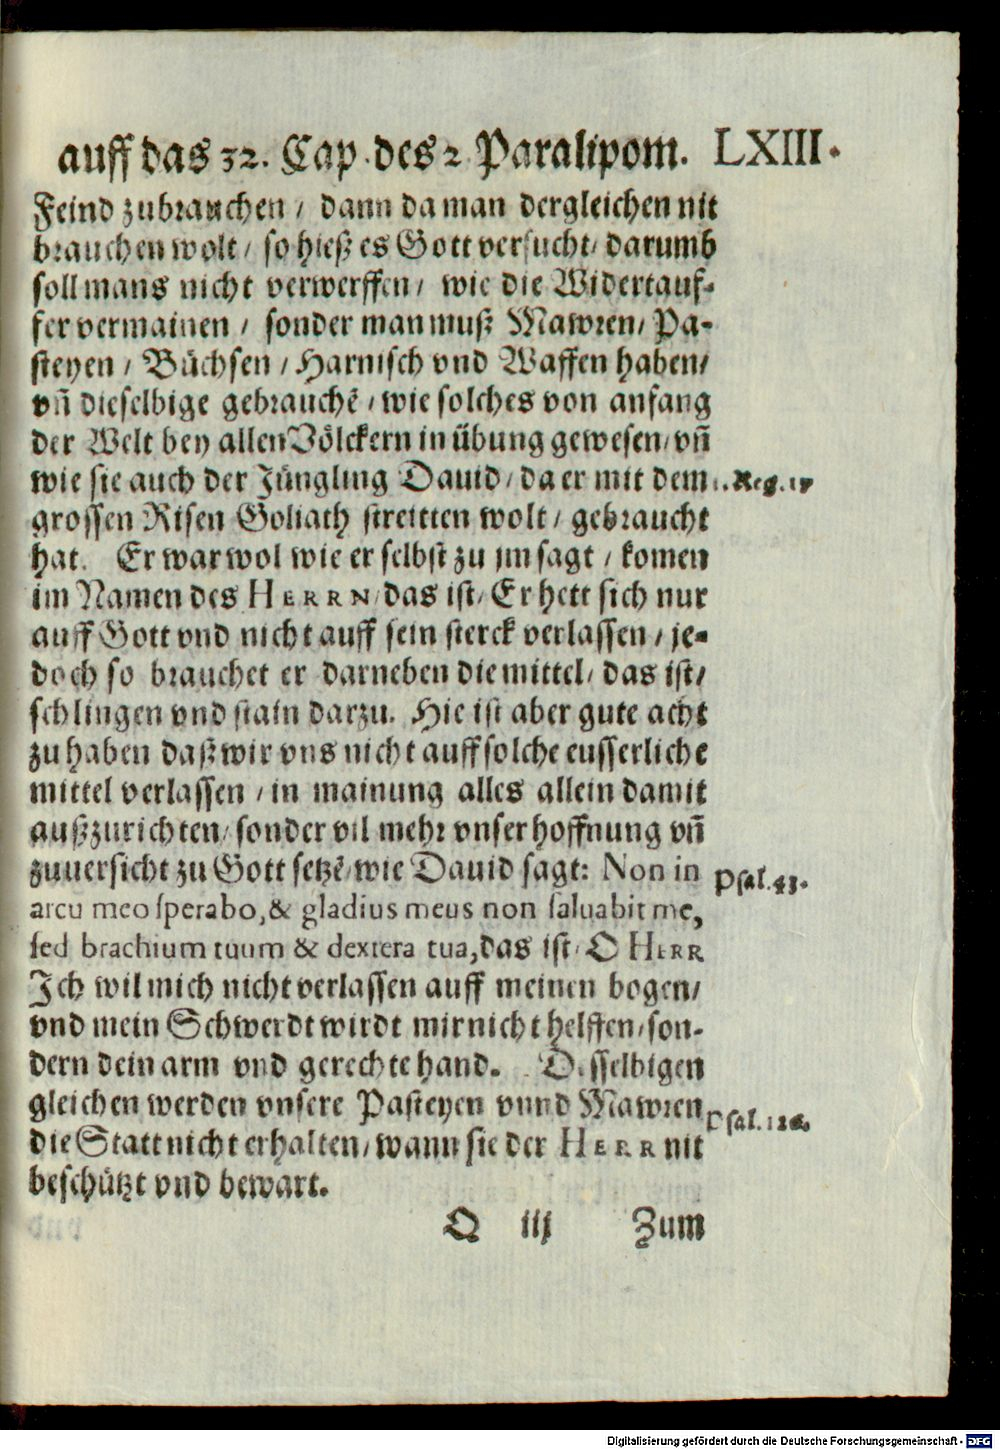 auff das 32. Cap. des 2 Paralipom. LXIII.
Feind zubrauchen / dann da man dergleichen nit
brauchen wolt / so hieß es Gott versucht / darumb
soll mans nicht verwerffen / wie die Widertauf-
fer vermainen / sonder man muß Mawren / Pa-
steyen / Büchsen / Harnisch vnd Waffen haben /
vñ dieselbige gebrauchẽ / wie solches von anfang
der Welt bey allen Völckern in übung gewesen / vñ
wie sie auch der Jüngling Dauid / da er mit dem 1. Reg. 17
grossen Risen Goliath streitten wolt / gebraucht
hat. Er war wol wie er selbst zu jm sagt / komen
im Namen des HERRN / das ist / Er hett sich nur
auff Gott vnd nicht auff sein sterck verlassen / je-
doch so brauchet er darneben die mittel / das ist /
schlingen vnd stain darzu. Hie ist aber gute acht
zu haben daß wir vns nicht auff solche eusserliche
mittel verlassen / in mainung alles allein damit
außzurichten / sonder vil mehr vnser hoffnung vñ
zuuersicht zu Gott setzẽ / wie Dauid sagt: Non in Psal. 43.
arcu meo sperabo, & gladius meus non saluabit me,
sed brachium tuum & dextera tua, das ist / O HERR
Ich wil mich nicht verlassen auff meinen bogen /
vnd mein Schwerdt wirdt mir nicht helffen / son-
dern dein arm vnd gerechte hand. Desselbigen
gleichen werden vnsere Pasteyen vnnd Mawren Psal. 126.
die Statt nicht erhalten / wann sie der HERR nit
beschützt vnd bewart.
Q iij Zum
Digitalisierung gefördert durch die Deutsche Forschungsgemeinschaft - DFG